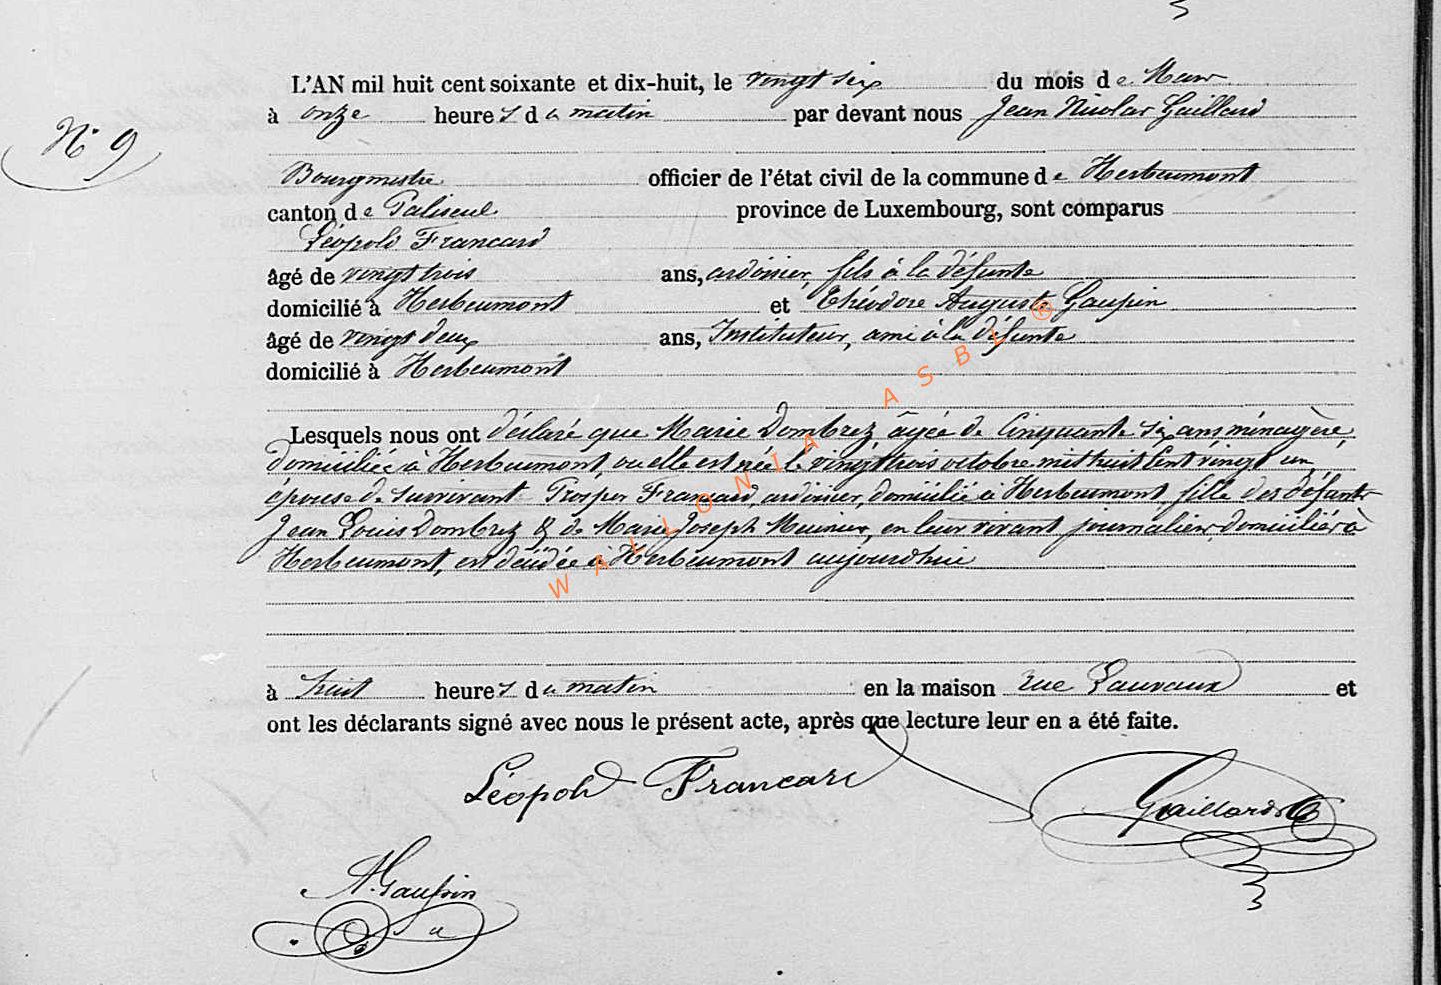 L'AN mil huit cent soixante et dix-huit, le vingt six du mois de Mars
à onze heures du matin par devant nous Jean Nicolas Gaillard
N° 9
Bourgmestre officier de l'état civil de la commune de Herbeumont
canton de Paliseul province de Luxembourg, sont comparus
Léopold Francard
âgé de vingt trois ans, ardoisier, fils à la défunte
domicilié à Herbeumont et Théodore Auguste Gaupin
âgé de vingt deux ans, Instituteur, ami à la défunte
domicilié à Herbeumont
Lesquels nous ont déclaré que Marie Dombrez, âgée de Cinquante six ans ménagère,
domiciliée à Herbeumont, où elle est née le vingt trois octobre mil huit Cent vingt un,
épouse de survivant Prosper Francard, ardoisier, domicilié à Herbeumont, fille des défunts
Jean Louis Dombrez & de Marie Joseph Meunier, en leur vivant journaliers domiciliés à
Herbeumont, est décédée à Herbeumont aujourd'hui
à huit heures du matin en la maison rue Lauvaux et
ont les déclarants signé avec nous le présent acte, après que lecture leur en a été faite.
Léopold Francard
Gaillard
A. Gaupin
WALLONIA ASBL ®